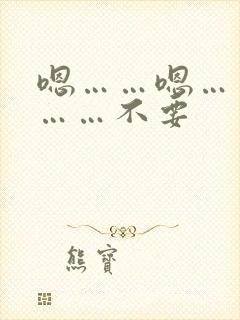 嗯……嗯…
……不要
熊寶